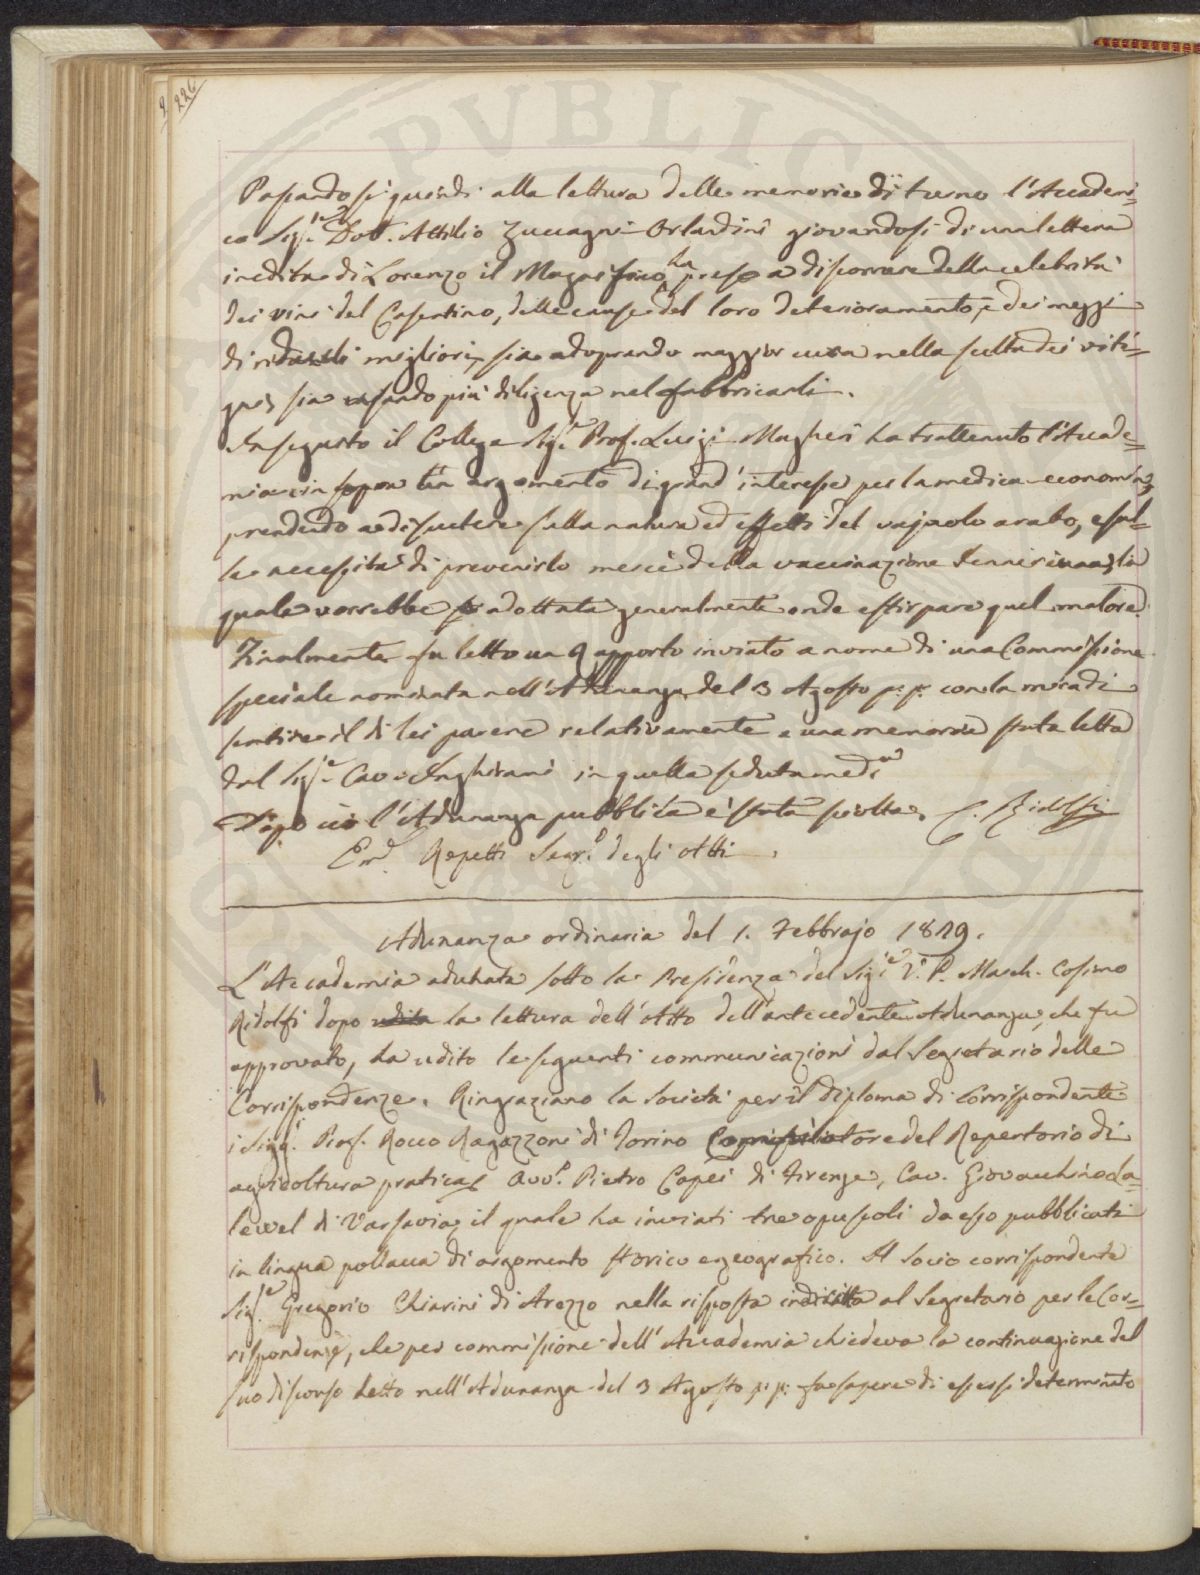 226
Passandosi quindi alla lettura delle memorie di turno l'Accademi-
co Sig.e Dott. Attilio Zuccagni Orlandini giovandosi di una lettera
inedita di Lorenzo il Magnifico ha preso a discorrere della celebrità
dei vini del Casentino, delle cause del loro deterioramento, e dei mezzi
di ridurli migliori, sia adoprando maggior cura nella scelta dei viti-
gni, sia usando più diligenza nel fabbricarli.
In seguito il Collega Sig.e Prof. Luigi Magheri ha trattenuto l'Accade-
mia sopra un argomento di grand'interesse per la medica economia,
prendendo a discutere sulla natura ed effetti del vajuolo arabo, e sul-
la necessità di prevenirlo mercè della vaccinazione Jenneriana, la
quale vorrebbe adottata generalmente onde estirpare quel malore.
Finalmente fu letto un Rapporto inviato a nome di una Commissione
speciale nominata nell'Adunanza del 3 Agosto p: p: con la mira di
sentire il di lei parere relativamente a una memoria stata letta
dal Sig.e Cav. Inghirami in quella seduta med.a
Dopo ciò l'Adunanza pubblica è stata sciolta. C. Ridolfi
Em.l Repetti Segr.o degli Atti.
Adunanza ordinaria del 1. Febbrajo 1829.
L'Accademia adunata sotto la Presidenza del Sig.e V. P. March. Cosimo
Ridolfi dopo udita la lettura dell'Atto dell'antecedente Adunanza, che fu
approvato, ha udito le seguenti communicazioni dal Segretario delle
Corrispondenze. Ringraziano la Società per il diploma di Corrispondente
i Sigg.i Prof. Rocco Ragazzoni di Torino Compilatore del Repertorio di
agricoltura pratica, Avv.o Pietro Capei di Firenze, Cav. Giovacchino La-
lewel di Varsavia, il quale ha inviati tre opuscoli da esso pubblicati
in lingua pollacca di argomento storico e geografico. Il socio corrispondente
Sig.e Gregorio Chiarini di Arezzo nella risposta indiritta al Segretario per le Cor-
rispondenze, che per commissione dell'Accademia chiedeva la continuazione del
suo discorso letto nell'Adunanza del 3 Agosto p: p: fa sapere di essersi determinato